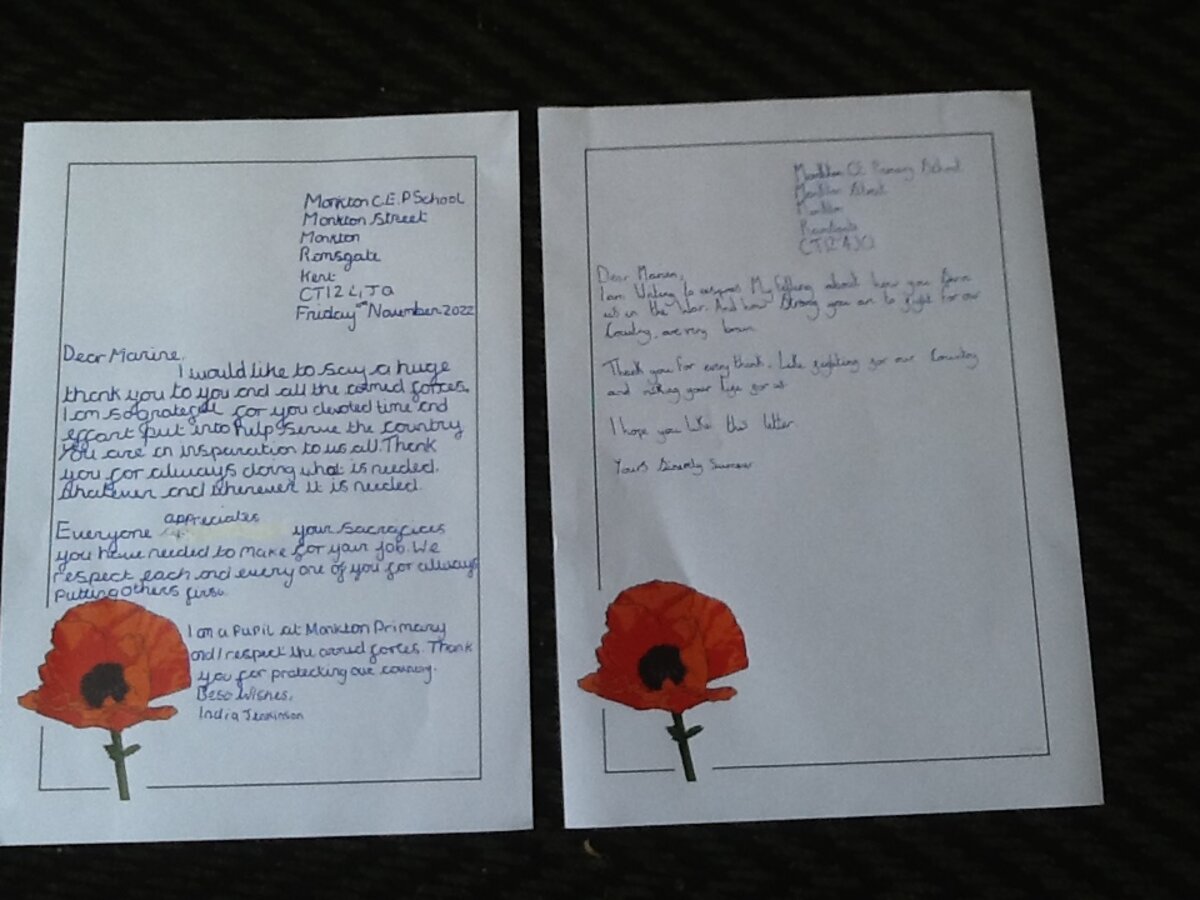 Monkton C.E.P School
Monkton Street
Monkton
Ramsgate
Kent
CT12 4JQ
Friday November 2022
Dear Marine,
I would like to say a huge
thank you to you and all the armed forces.
I am so grateful for you devoted time and
effort put into help serve the country
You are an insparation to us all. Thank
you for always doing what is needed,
whatever and wherever it is needed.
Everyone appreciates your sacrafices
you have needed to make for your job. We
respect each and every one of you for always
putting others first.
I am a pupil at Monkton Primary
and I respect the armed forces. Thank
you for protecting our country.
Best wishes,
India Jenkinson
Monkton CE Primary School
Monkton Street
Monkton
CT12 4JQ
Dear Marine,
I am Writing to express My feelling about how you
us in the War. And how Strong you are to fight for our
Country, are very
Thank you for every think. Like fighting for our Country
and risking your life for us
I hope you like this letter
Yours Summer